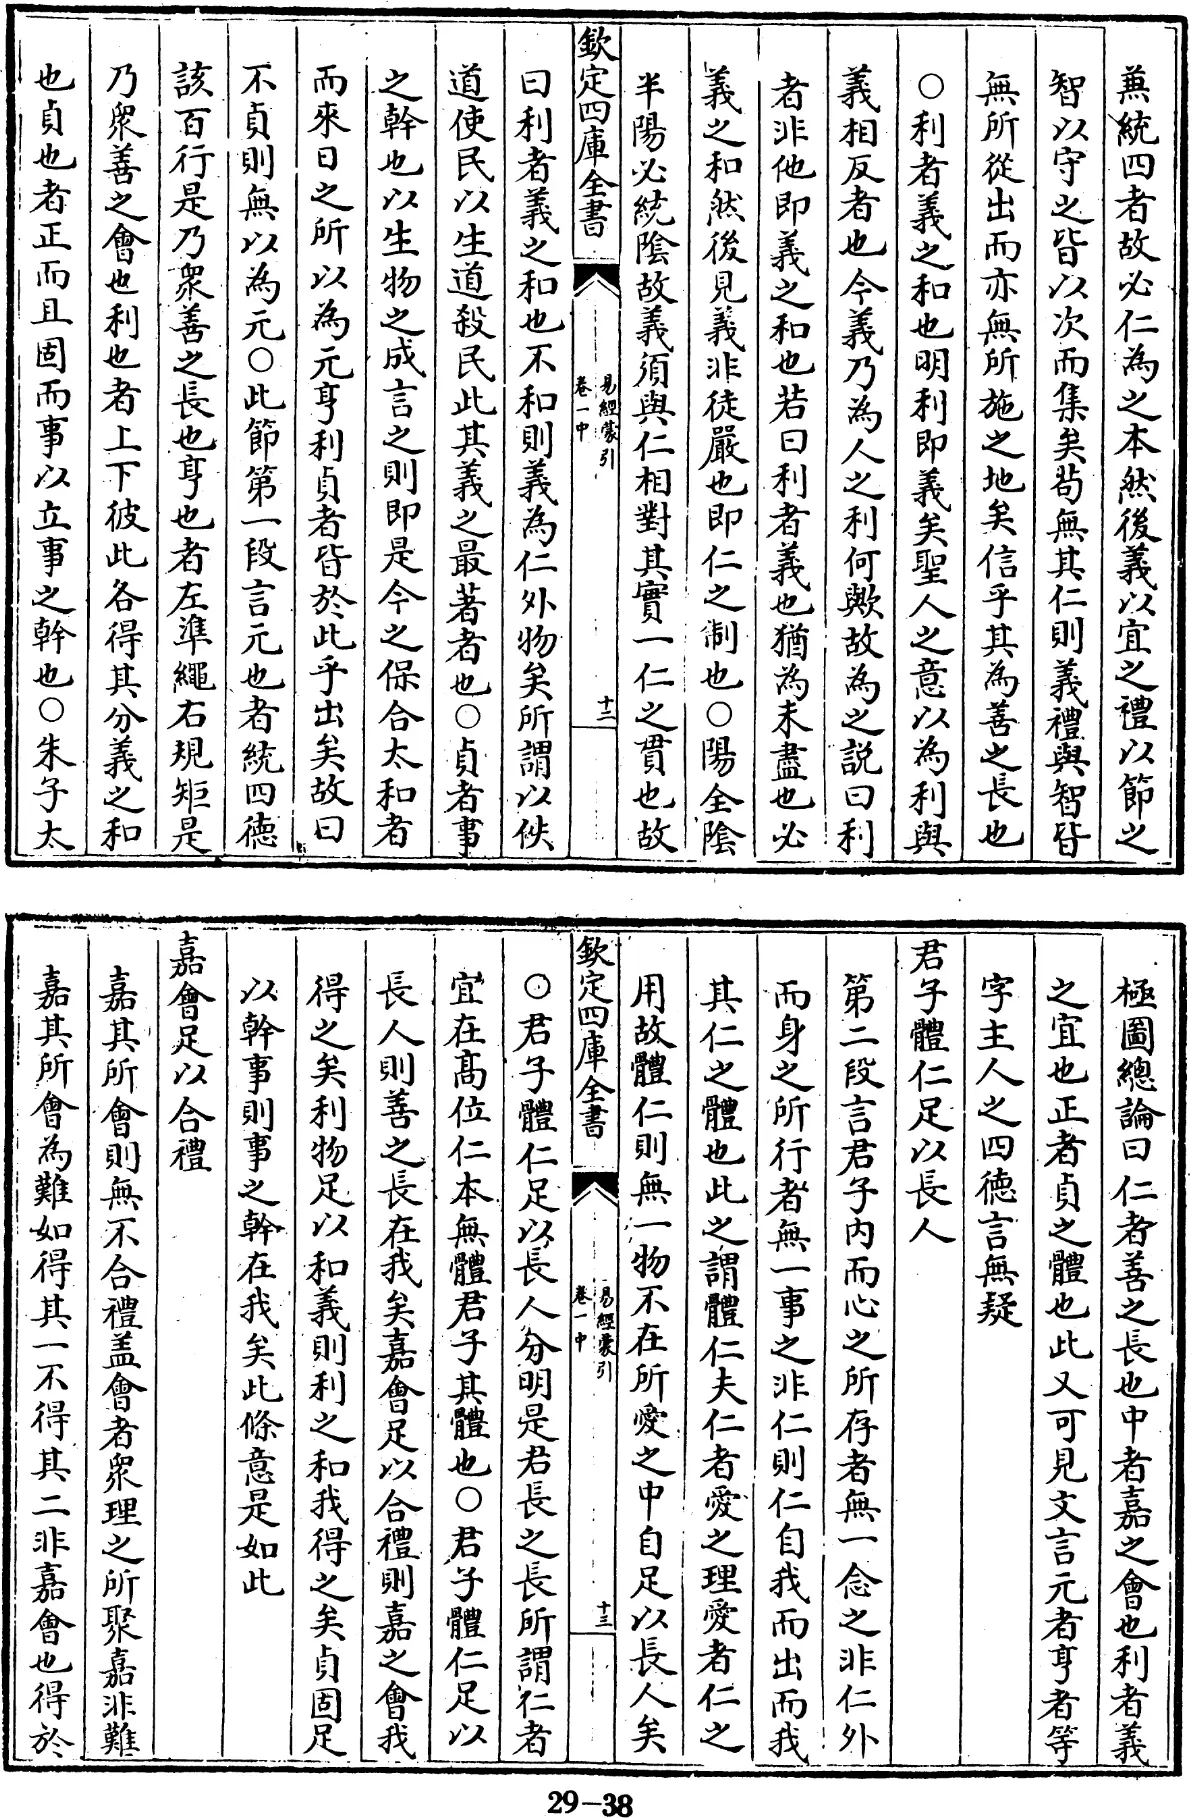 兼統四者故必仁為之本然後義以宜之禮以節之
智以守之皆以次而集矣苟無其仁則義禮與智皆
無所從出而亦無所施之地矣信乎其為善之長也
○利者義之和也明利即義矣聖人之意以為利與
義相反者也今義乃為人之利何歟故為之説曰利
者非他即義之和也若曰利者義也猶為未盡也必
義之和然後見義非徒嚴也即仁之制也○陽全陰
半陽必統陰故義須與仁相對其實一仁之貫也故
欽定四庫全書
易經蒙引
卷一中
十二
曰利者義之和也不和則義為仁外物矣所謂以佚
道使民以生道殺民此其義之最著者也○貞者事
之幹也以生物之成言之則即是今之保合太和者
而來日之所以為元亨利貞者皆於此乎出矣故曰
不貞則無以為元○此節第一段言元也者統四德
該百行是乃衆善之長也亨也者左準繩右規矩是
乃衆善之會也利也者上下彼此各得其分義之和
也貞也者正而且固而事以立事之幹也○朱子太
極圖總論曰仁者善之長也中者嘉之會也利者義
之宜也正者貞之體也此又可見文言元者亨者等
字主人之四德言無疑
君子體仁足以長人
第二段言君子内而心之所存者無一念之非仁外
而身之所行者無一事之非仁則仁自我而出而我
其仁之體也此之謂體仁夫仁者愛之理愛者仁之
用故體仁則無一物不在所愛之中自足以長人矣
欽定四庫全書
易經蒙引
卷一中
十三
○君子體仁足以長人分明是君長之長所謂仁者
宜在高位仁本無體君子其體也○君子體仁足以
長人則善之長在我矣嘉會足以合禮則嘉之會我
得之矣利物足以和義則利之和我得之矣貞固足
以幹事則事之幹在我矣此條意是如此
嘉會足以合禮
嘉其所會則無不合禮盖會者衆理之所聚嘉非難
嘉其所會為難如得其一不得其二非嘉會也得於
29-38